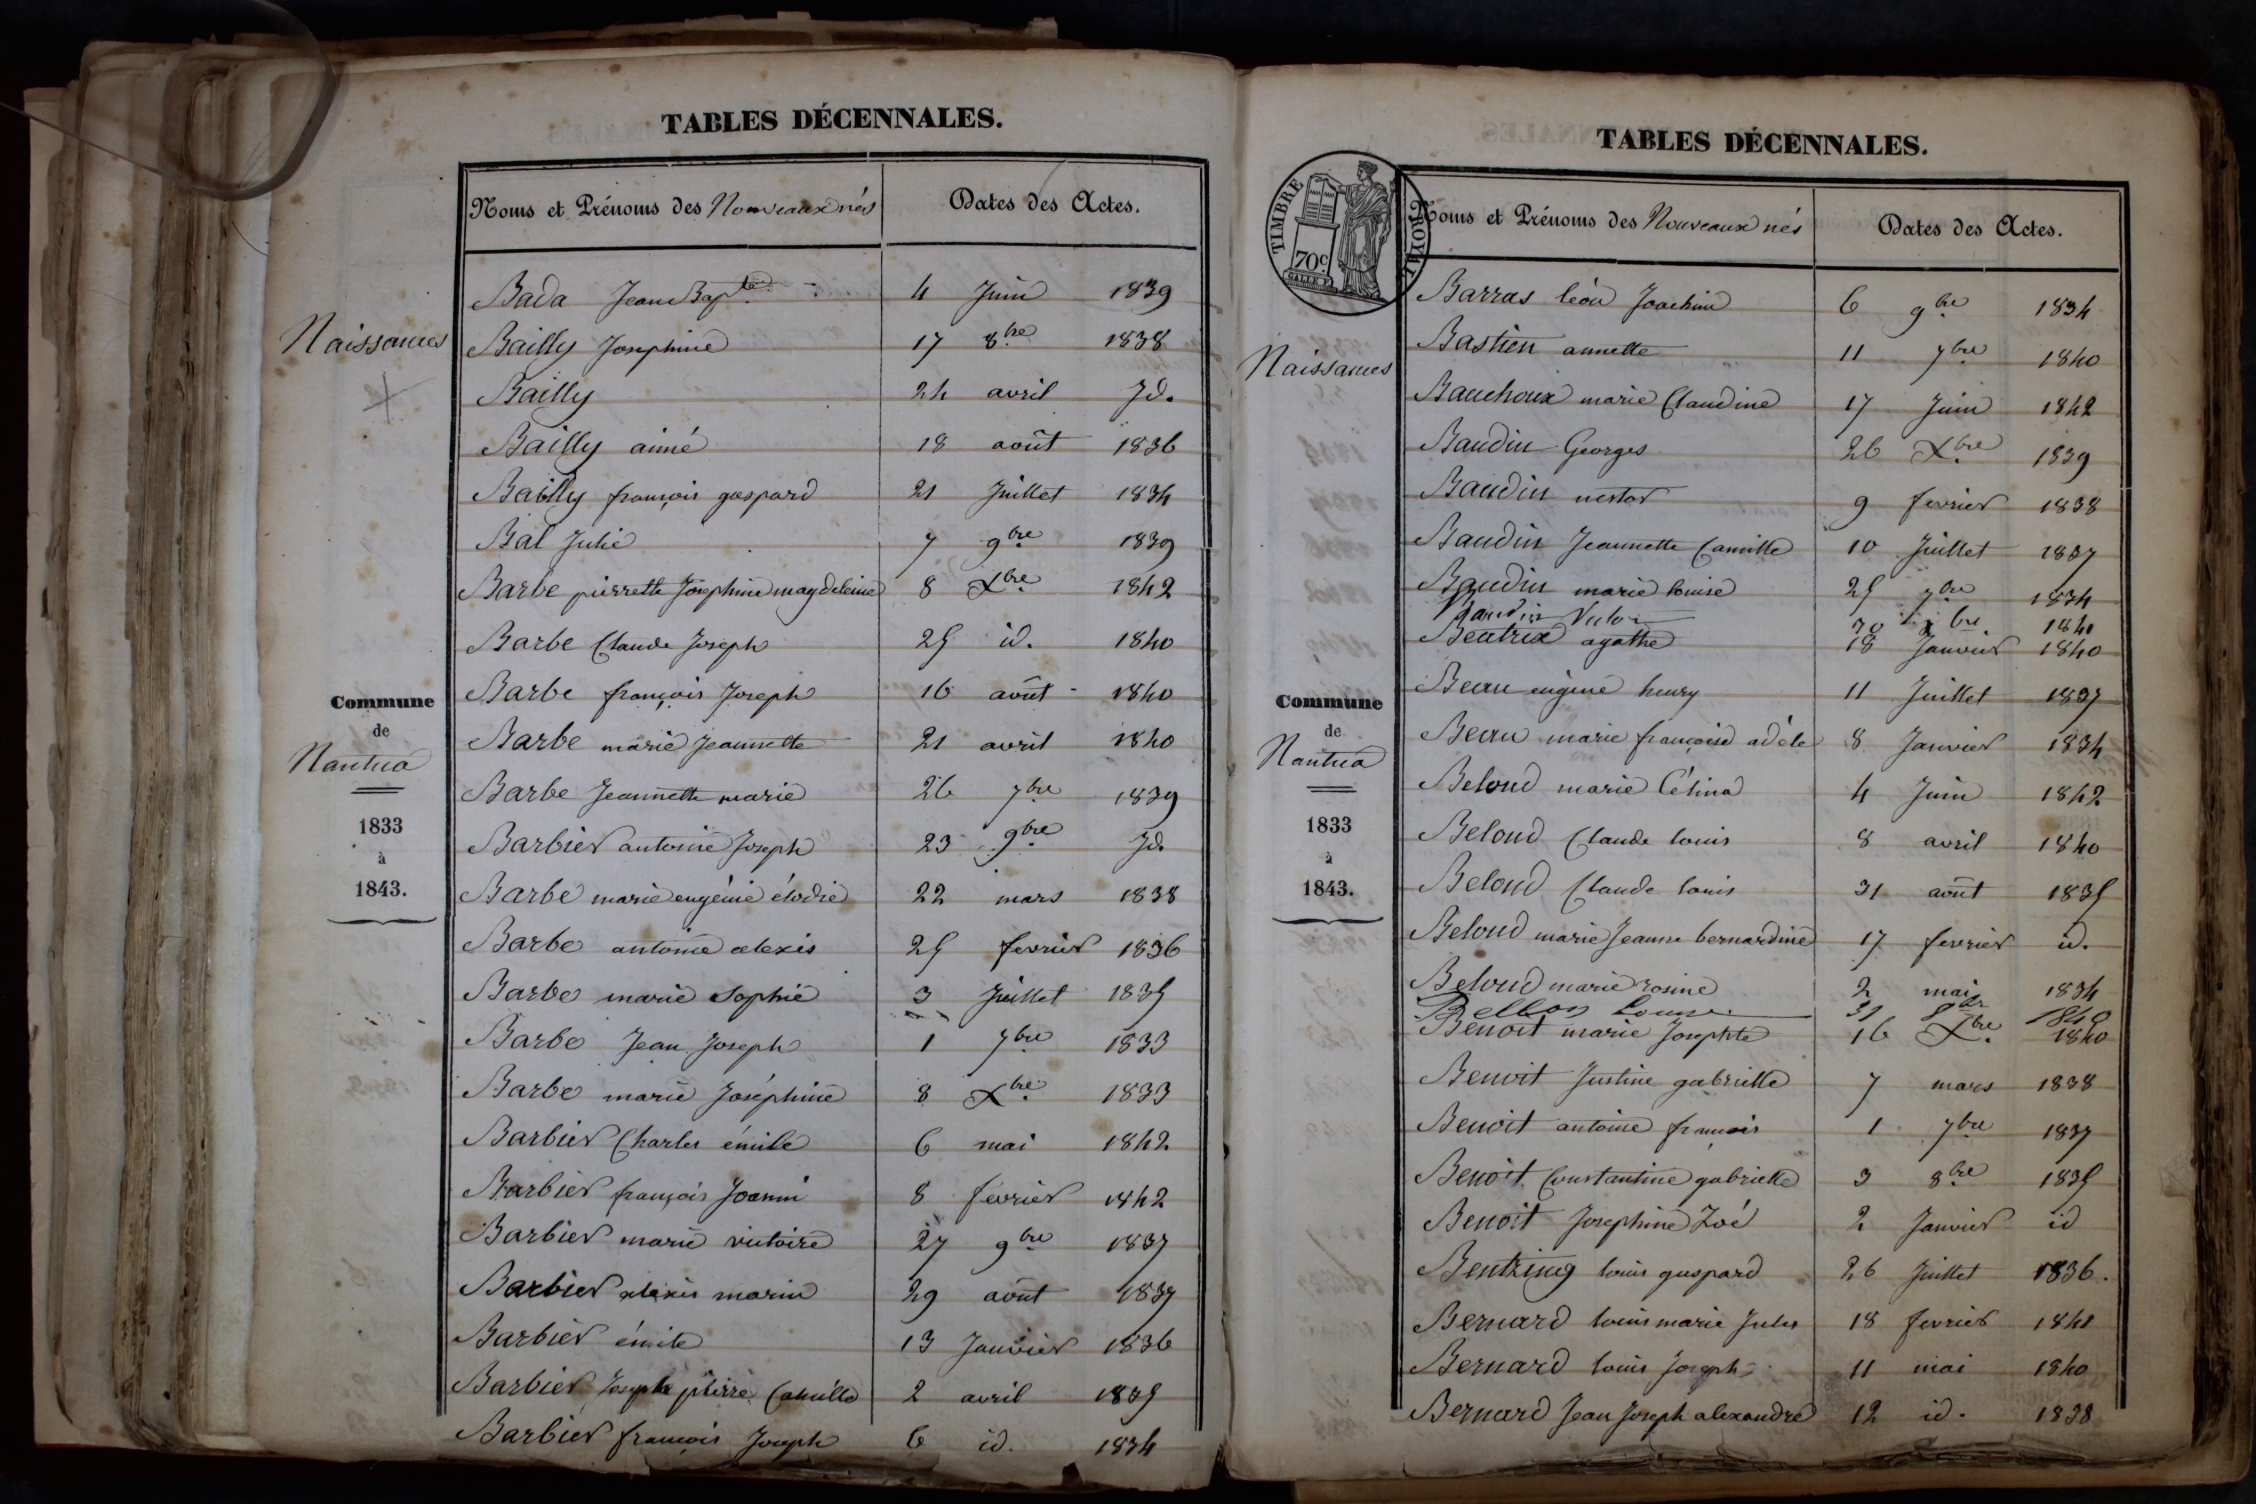 TABLES DÉCENNALES.
Noms et Prénoms des Nouveaux nés Dates des Actes.
Naissances
Commune
de
Nantua
1833
à
1843.
Bada Jean Bapte. 4 Juin 1839
Bailly Josephine 17 8bre 1838
Bailly 24 avril Jd.
Bailly aimé 18 août 1836
Bailly françois gaspard 21 Juillet 1834
Bal Julie 7 9bre 1839
Barbe pierrette Josephine magdeleine 8 Xbre 1842
Barbe Claude Joseph 25 id. 1840
Barbe françois Joseph 16 août 1840
Barbe marie Jeannette 21 avril 1840
Barbe Jeannette marie 26 7bre 1839
Barbier antoine Joseph 23 9bre Jd.
Barbe marie eugénie élodie 22 mars 1838
Barbe antoine alexis 25 fevrier 1836
Barbe marie Sophie 3 Juillet 1835
Barbe Jean Joseph 1 7bre 1833
Barbe marie Joséphine 8 Xbre 1833
Barbier Charles émile 6 mai 1842
Barbier françois Joanni 8 fevrier 1842
Barbier marie victoire 27 9bre 1837
Barbier alexis marin 29 août 1837
Barbier émile 13 Janvier 1836
Barbier Joseph pierre Camille 2 avril 1835
Barbier françois Joseph 6 id. 1834
TABLES DÉCENNALES.
TIMBRE ROYAL
70c
Noms et Prénoms des Nouveaux nés Dates des Actes.
Naissances
Commune
de
Nantua
1833
à
1843.
Barras léon Joachim 6 9bre 1834
Bastien annette 11 7bre 1840
Bauchoux marie Claudine 17 Juin 1842
Baudin Georges 26 Xbre 1839
Baudin nestor 9 fevrier 1838
Baudin Jeannette Camille 10 Juillet 1837
Baudin marie louise 25 7bre 1834
Baudin Victor 30 bre 1841
Beatrix agathe 18 Janvier 1840
Beau eugène henry 11 Juillet 1837
Beau marie françoise adéle 8 Janvier 1834
Beloud marie Célina 4 Juin 1842
Beloud Claude louis 8 avril 1840
Beloud Claude louis 31 août 1835
Beloud marie Jeanne bernardine 17 fevrier id.
Beloud marie rosine 2 mai 1834
Bellon Louise 31 1840
Benoit marie Josephte 16 Xbre 1840
Benoit Justine gabrielle 7 mars 1838
Benoit antoine françois 1 7bre 1837
Benoit Constantine gabrielle 3 8bre 1835
Benoit Josephine Zoé 2 Janvier id
Bentzing louis gaspard 26 Juillet 1836.
Bernard louis marie Jules 18 fevrier 1841
Bernard louis Joseph 11 mai 1840
Bernard Jean Joseph alexandre 12 id. 1838